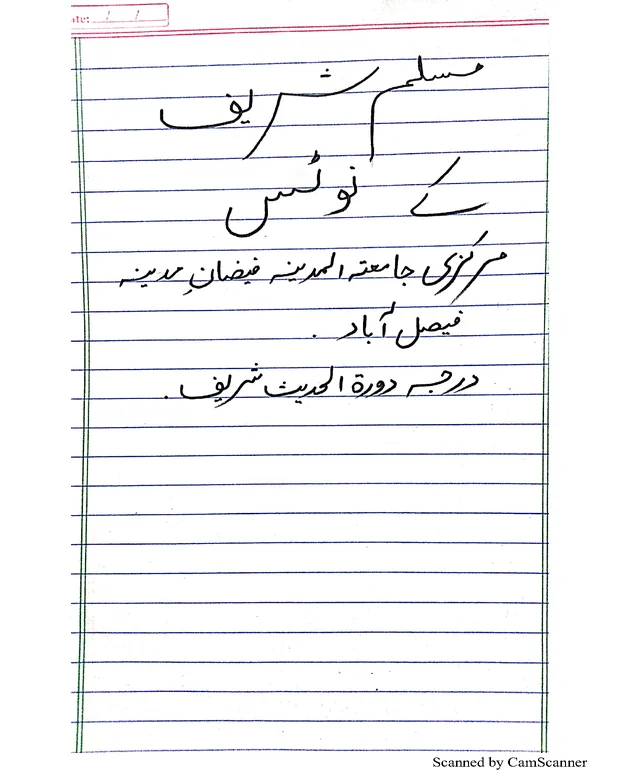 ate: / /
مسلم شریف
کے نوٹس
مرکزی جامعۃ المدینہ فیضانِ مدینہ
فیصل آباد ۔
درجہ دورۃ الحدیث شریف ۔
Scanned by CamScanner